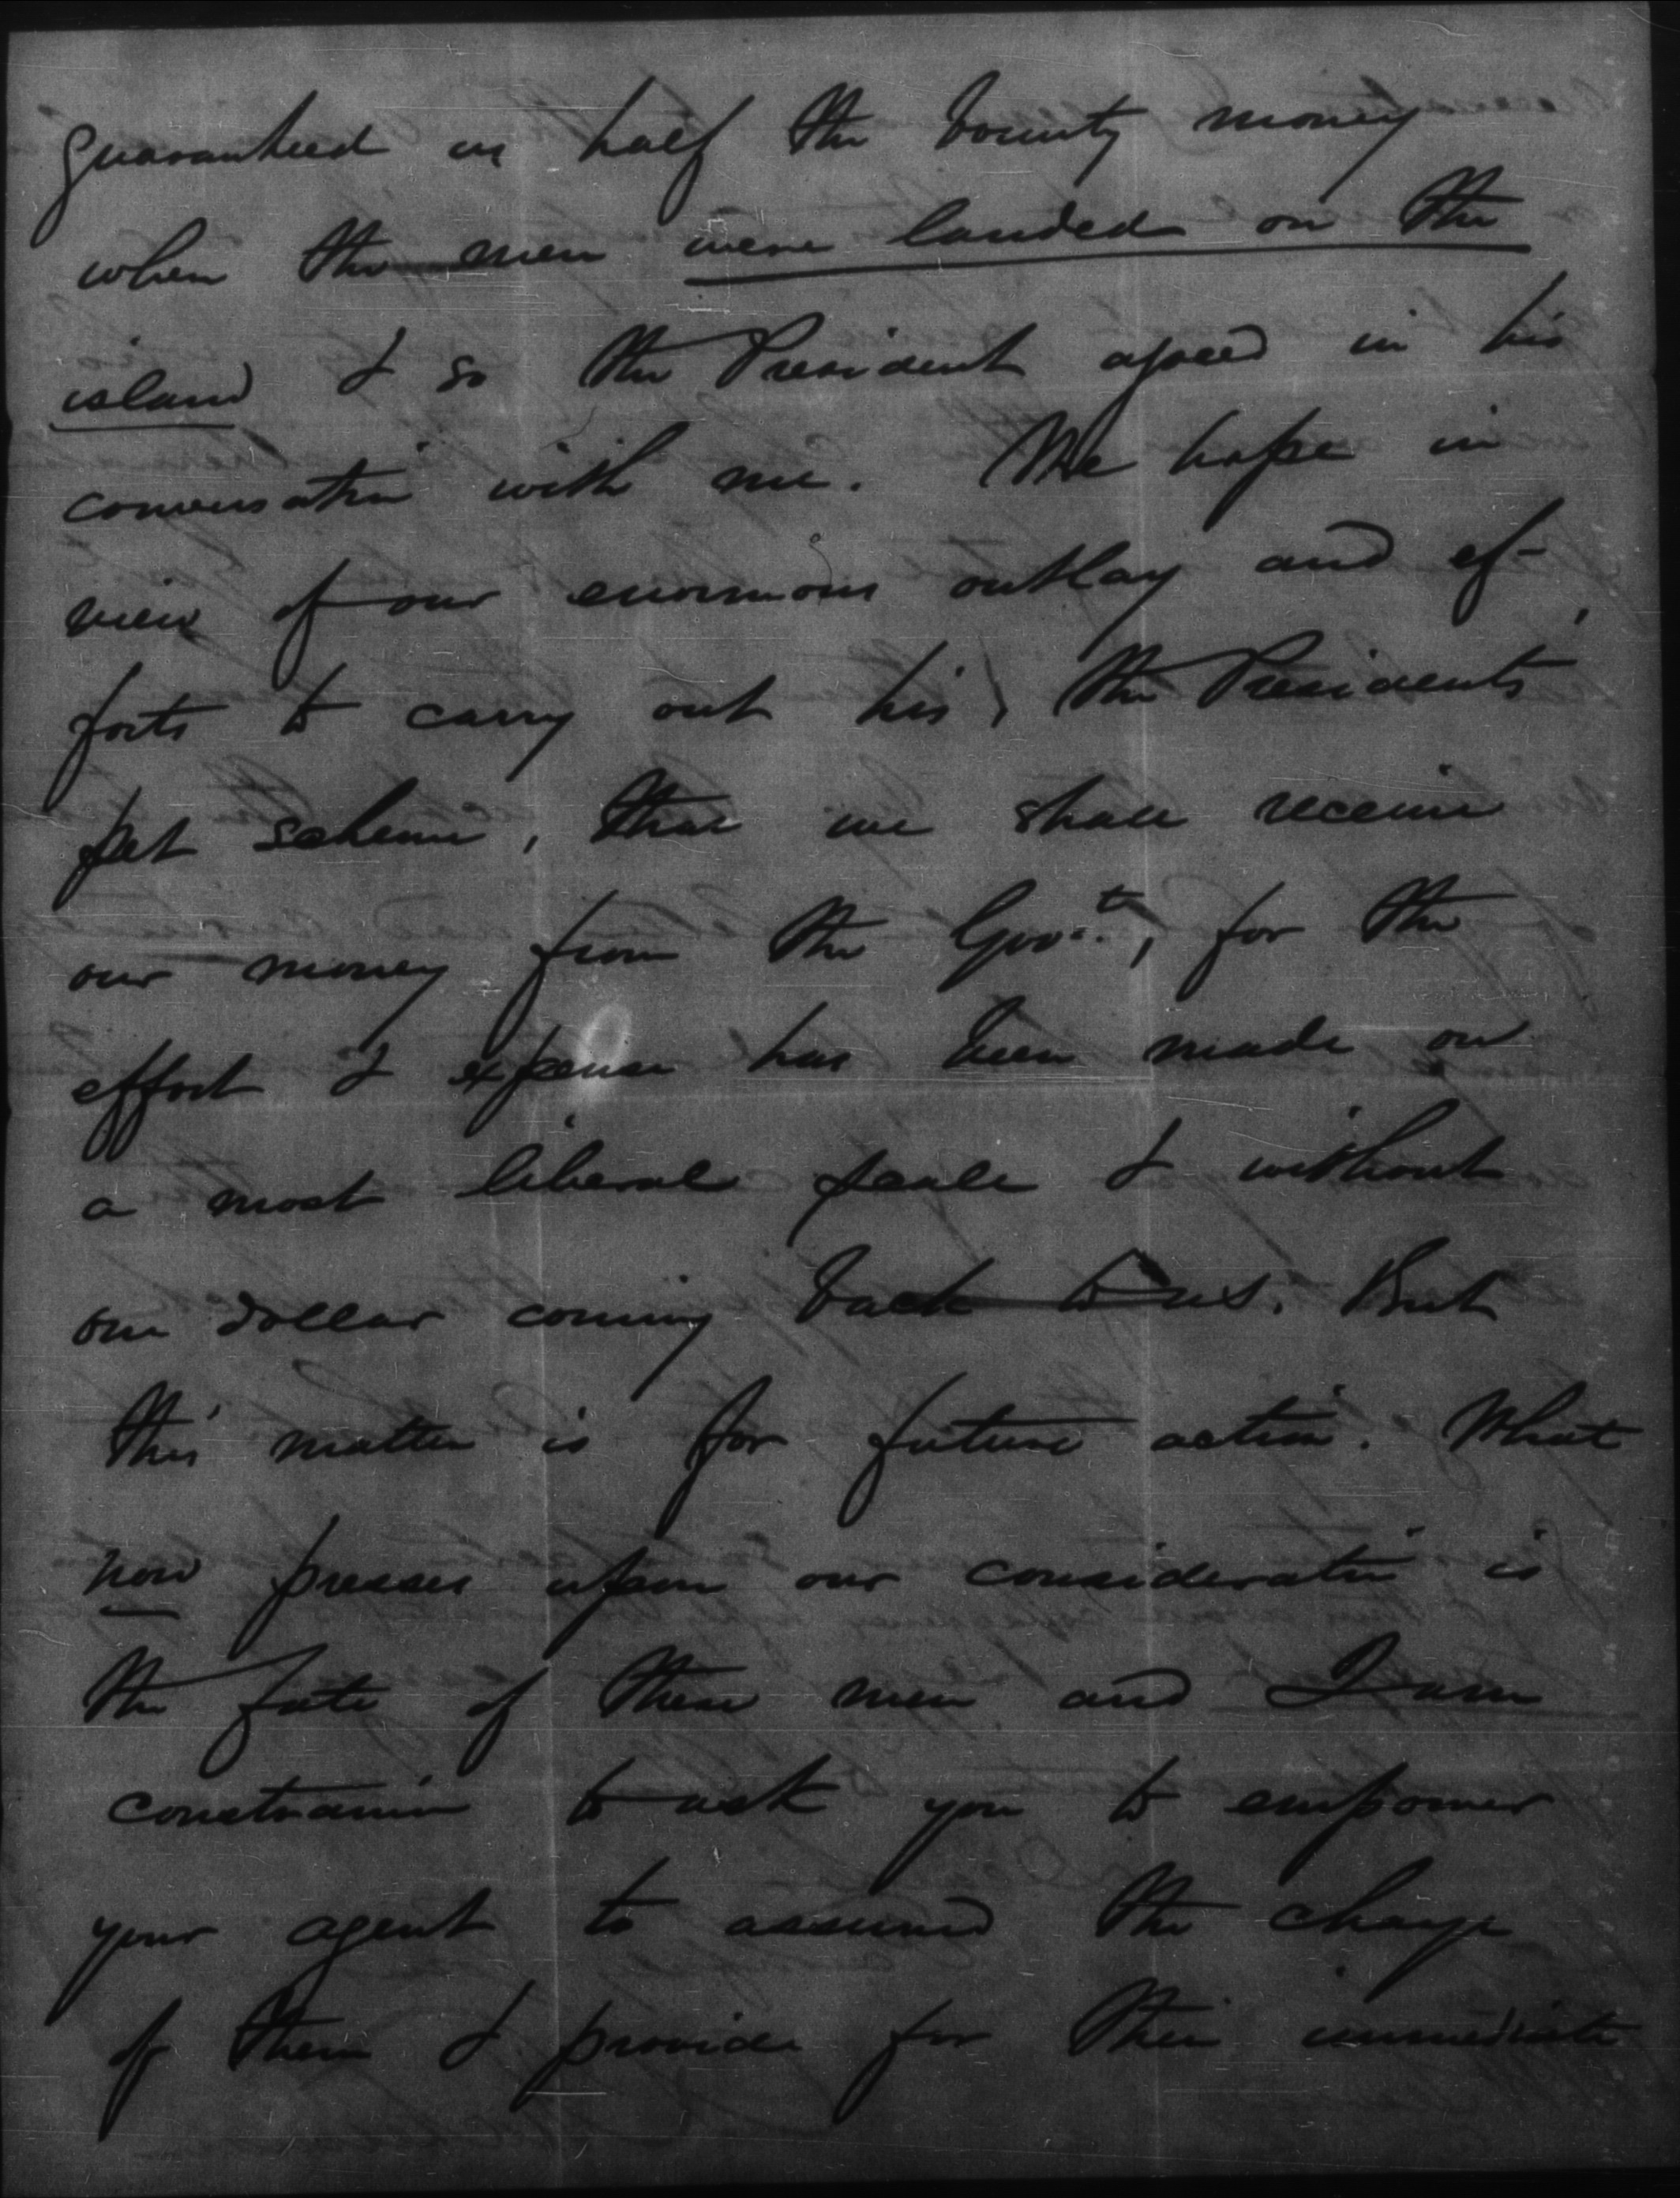 guaranteed us half the bounty money
when the men were landed on the
island & so the President agreed in his
conversation with me. We hope in
view of our enormous outlay and ef-
forts to carry out his, the President's
pet scheme, that we shall receive
our money from the Govt., for the
effort & expense has been made on
a most liberal scale & without
one dollar coming back to us. But
this matter is for future action. What
now presses upon our consideration is
the fate of these men and I am
constrain to ask you to empower
your agent to assume the charge
of them & provide for their immediate